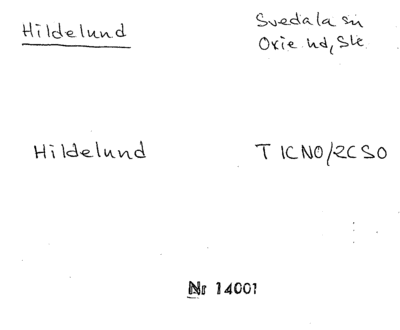 Hildelund
Svedala sn
Oxie hd, Sk
Hildelund
T 1CNO/2CSO
Nr 14001